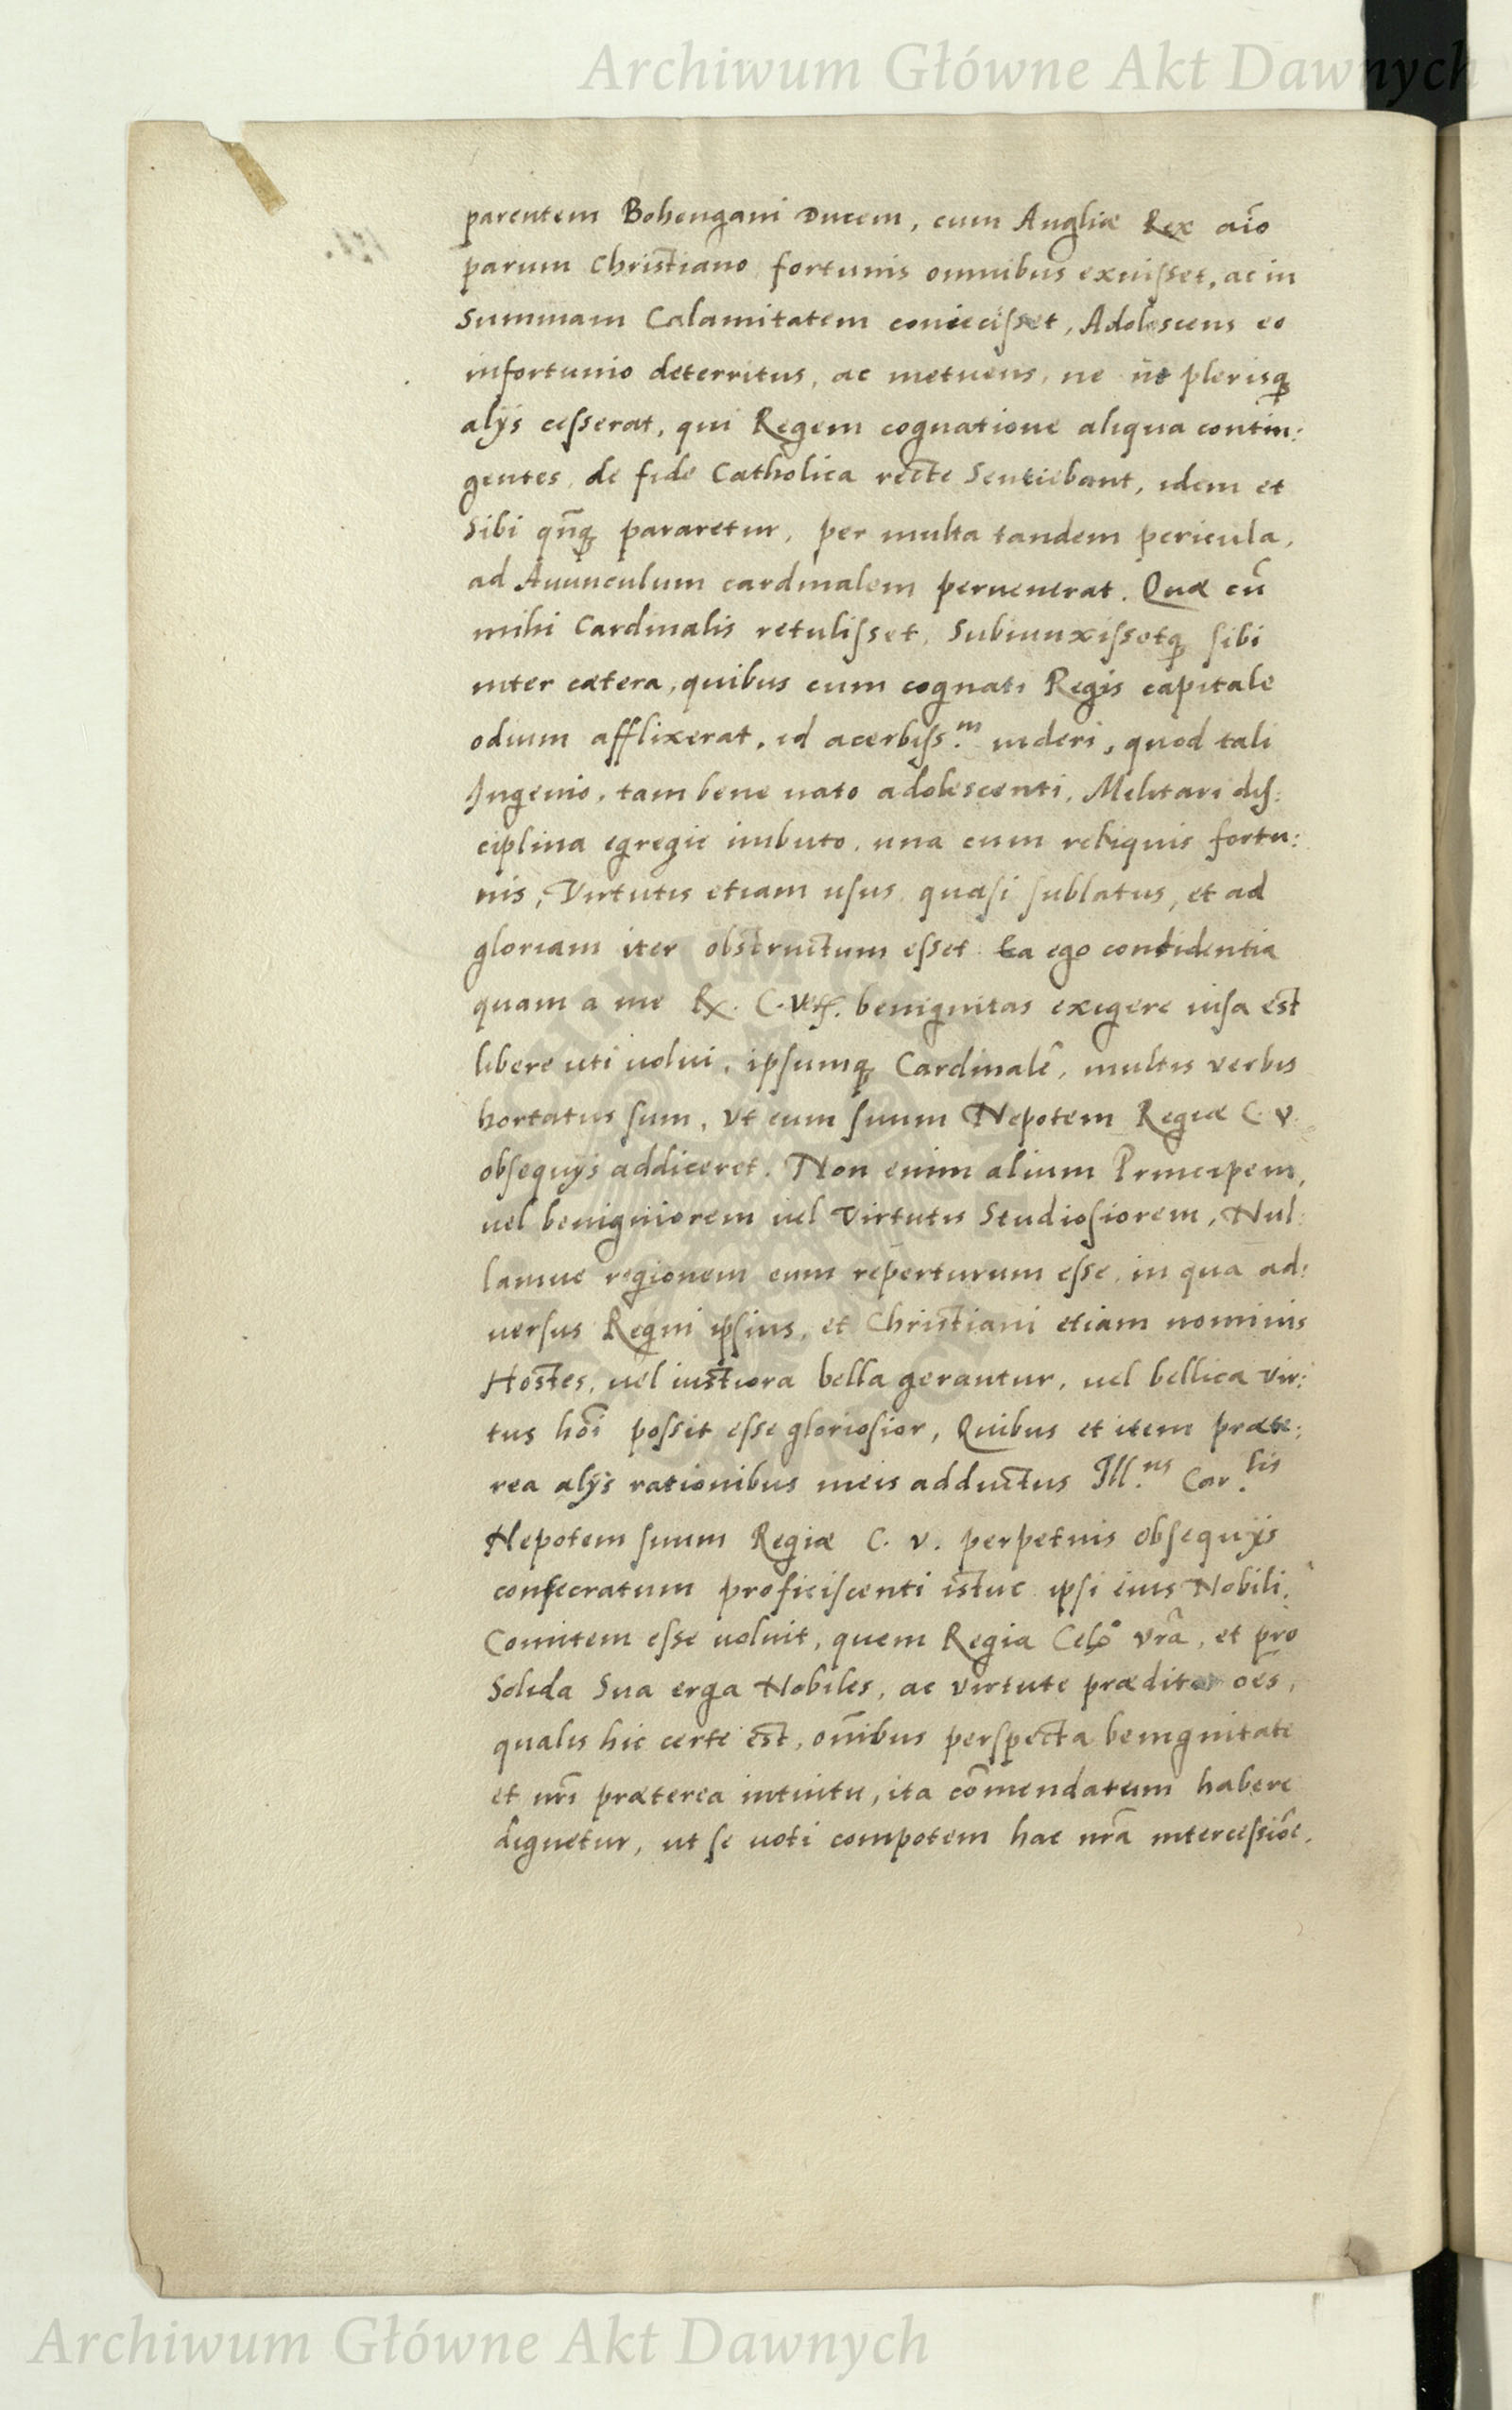 Archiwum Główne Akt Dawnych
parentem Bohengani Ducem, cum Angliæ Rex aĩo
parum Christiano fortunis omnibus exuisset, ac in
Summam Calamitatem coniecisset, Adolescens eo
infortunio deterritus, ac metuens, ne ut plerisq
alijs cesserat, qui Regem cognatione aliqua contin:
gentes, de fide Catholica recte Sentiebant, idem et
Sibi qñq pararetur, per multa tandem pericula,
ad Auunculum cardinalem peruenerat. Quæ cū
mihi Cardinalis retulisset, Subiunxissetq sibi
inter cætera, quibus eum cognati Regis capitale
odium afflixerat, id acerbiss.m uideri, quod tali
Ingenio, tam bene nato adolescenti, Militari dis:
ciplina egregie imbuto, una cum reliquis fortu:
nis, Virtutis etiam usus quasi sublatus, et ad
gloriam iter obstructum esset. Ea ego confidentia
quam a me R. C. Vest. benignitas exigere uisa est
libere uti uolui, ipsumq Cardinalē, multis verbis
hortatus sum, Vt eum suum Nepotem Regiæ C. V.
obsequijs addiceret. Non enim alium Principem,
uel benigniorem uel Virtutis Studiosiorem, Nul:
lamue regionem eum reperturum esse, in qua ad:
uersus Regni ipsius, et Christiani etiam nominis
Hostes, uel iustiora bella gerantur, uel bellica vir:
tus hoĩ possit esse gloriosior, Quibus et item præte:
rea alijs rationibus meis adductus Ill.us Car.lis
Nepotem suum Regiæ C. V. perpetuis obsequijs
consecratum proficiscenti istuc ipsi eius Nobili.
Comitem esse uoluit, quem Regia Celo vrã, et pro
Solida Sua erga Nobiles, ac virtute præditos oēs,
qualis hic certe est, oñibus perspecta benignitate
et nrĩ præterea intuitu, ita cõmendatum habere
dignetur, ut se uoti compotem hac nrã intercessiõe.
Archiwum Główne Akt Dawnych